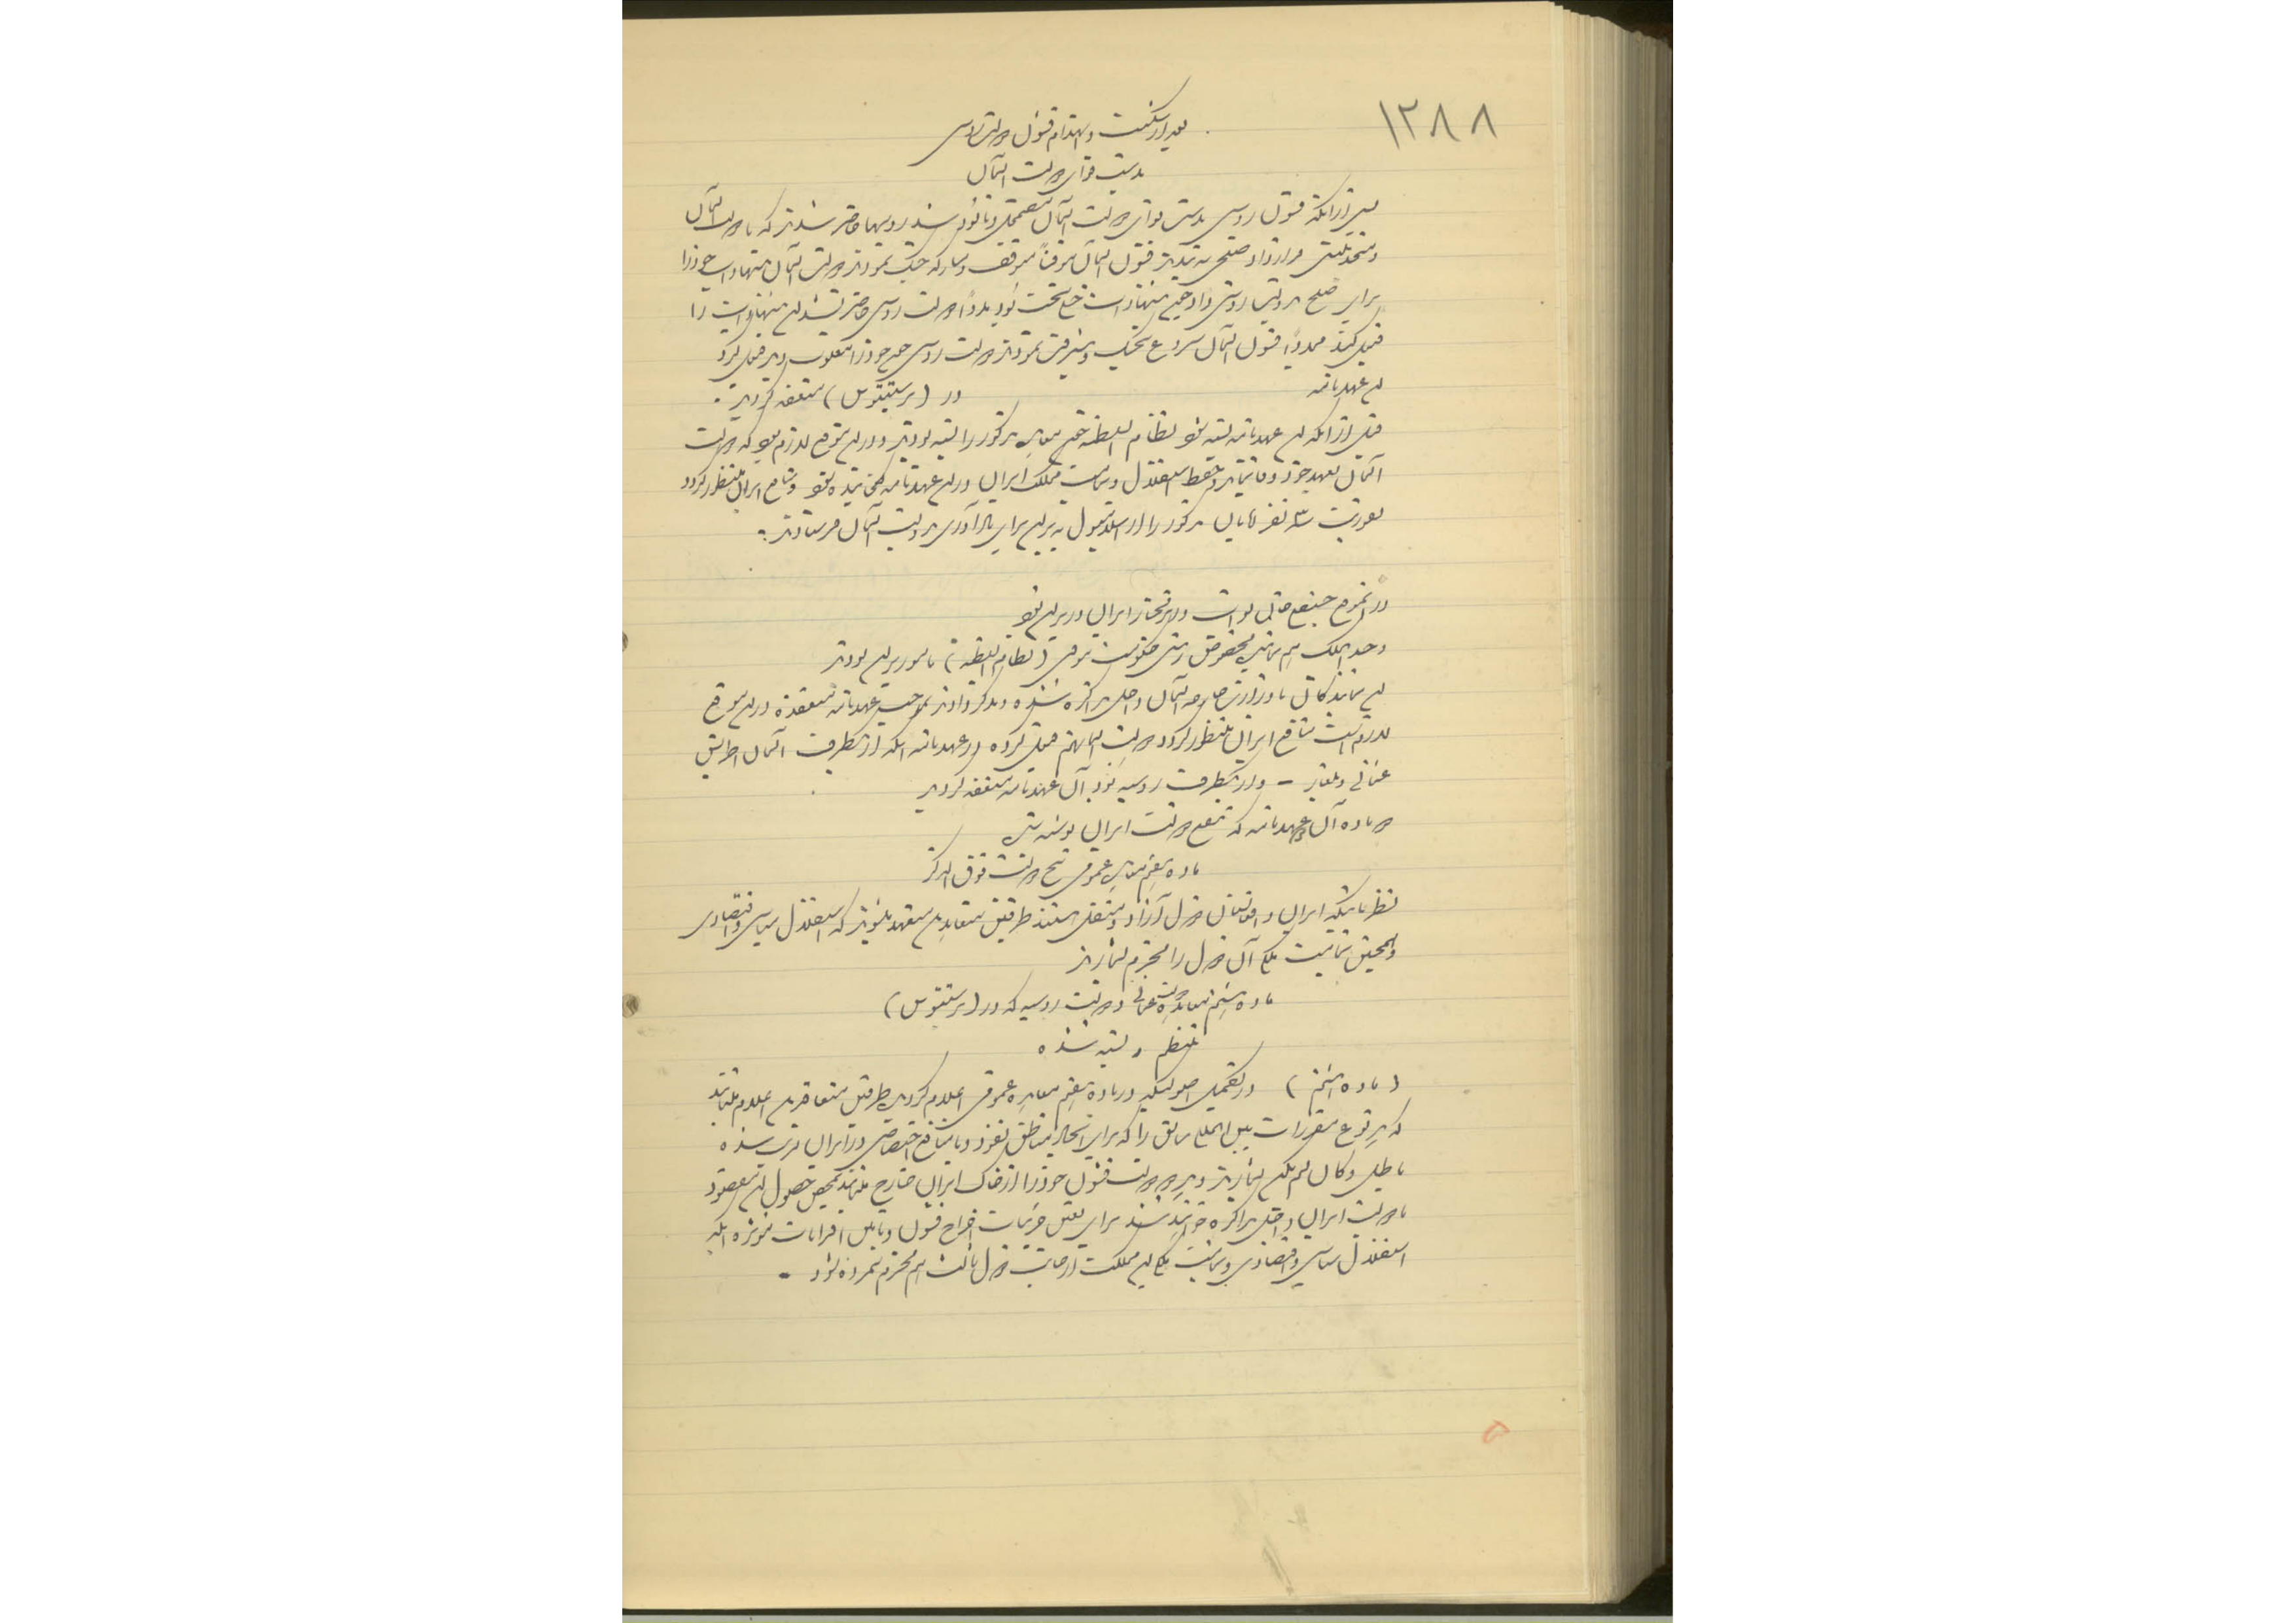 ۱۲۸۸
بعد از شکست و انهدام قشون دولت روس
بدست قوای دولت آلمان
پس از آنکه قشون روس بدست قوای دولت آلمان مضمحل و نابود شد روسها حاضر شدند که با دولت آلمان
و متحدینش قرارداد صلحی به بندند قشون آلمان موقتاً متوقف و متارکه جنگ نمودند دولت آلمان پیشنهادات خود را
برای صلح بدولت روس داد چون پیشنهادات خیلی سخت بود بدواً دولت روس حاضر نشد این پیشنهادات را
قبول کند مجدداً قشون آلمان شروع بجنگ و پیشرفت نمودند دولت روس چون خود را مغلوب دید قبول کرد
این عهدنامه در (برست لیتوسک) منعقد گردید.
قبل از آنکه این عهدنامه بسته شود نظام السلطنه معاهده مذکور را بسته بودند و در این موقع لازم بود که دولت
آلمان بعهد خود وفا نماید و حفظ استقلال و تمامیت مملکت ایران در این عهدنامه گنجانیده شود و منافع ایران منظور گردد
بدینصورت سه نفر آقایان مذکور را از اسلامبول به برلین برای یادآوری بدولت آلمان فرستادند.
در آنموقع حسینقلی خان نواب وزیر مختار ایران در برلین بود
وحید الملک هم نماینده مخصوص رسمی حکومت موقتی (نظام السلطنه) مأمور برلین بودند
این نمایندگان با وزارت خارجه آلمان داخل مذاکره شده و تذکر دادند بموجب عهدنامه منعقده در این موقع
لازم است منافع ایران منظور گردد دولت آلمان هم قبول کرده در عهدنامه که از یکطرف آلمان اطریش
عثمانی و بلغار - و از یکطرف روسیه بود آن عهدنامه منعقد گردید
دو ماده آن عهدنامه که بنفع دولت ایران نوشته شد
ماده هفتم معاهده عمومی پنج دولت فوق الذکر
نظر باینکه ایران و افغانستان دول آزاد و مستقلی هستند طرفین متعاهدین متعهد میشوند که استقلال سیاسی و اقتصادی
و همچنین تمامیت ملکی آن دول را محترم بشمارند
ماده هشتم معاهده دولت عثمانی و دولت روسیه که در (برست لیتوسک)
تنظیم و بسته شده
(ماده هشتم) در تکمیل اصولیکه در ماده هفتم معاهده عمومی اعلام گردید طرفین متعاهدین اعلام مینمایند
که هر نوع مقررات بین المللی سابق را که برای ایجاد مناطق نفوذ و یا منافع اختصاصی در ایران مرتب شده
باطل و کان لم یکن بشمارند و هر دو دولت قشون خود را از خاک ایران خارج مینمایند و بمحض حصول این مقصود
با دولت ایران داخل مذاکره خواهند شد برای تعیین جزئیات اخراج قشون و تأمین اقدامات مؤثره اینکه
استقلال سیاسی و اقتصادی و تمامیت ملکی این مملکت از جانب دول ثالث هم محترم شمرده شود -